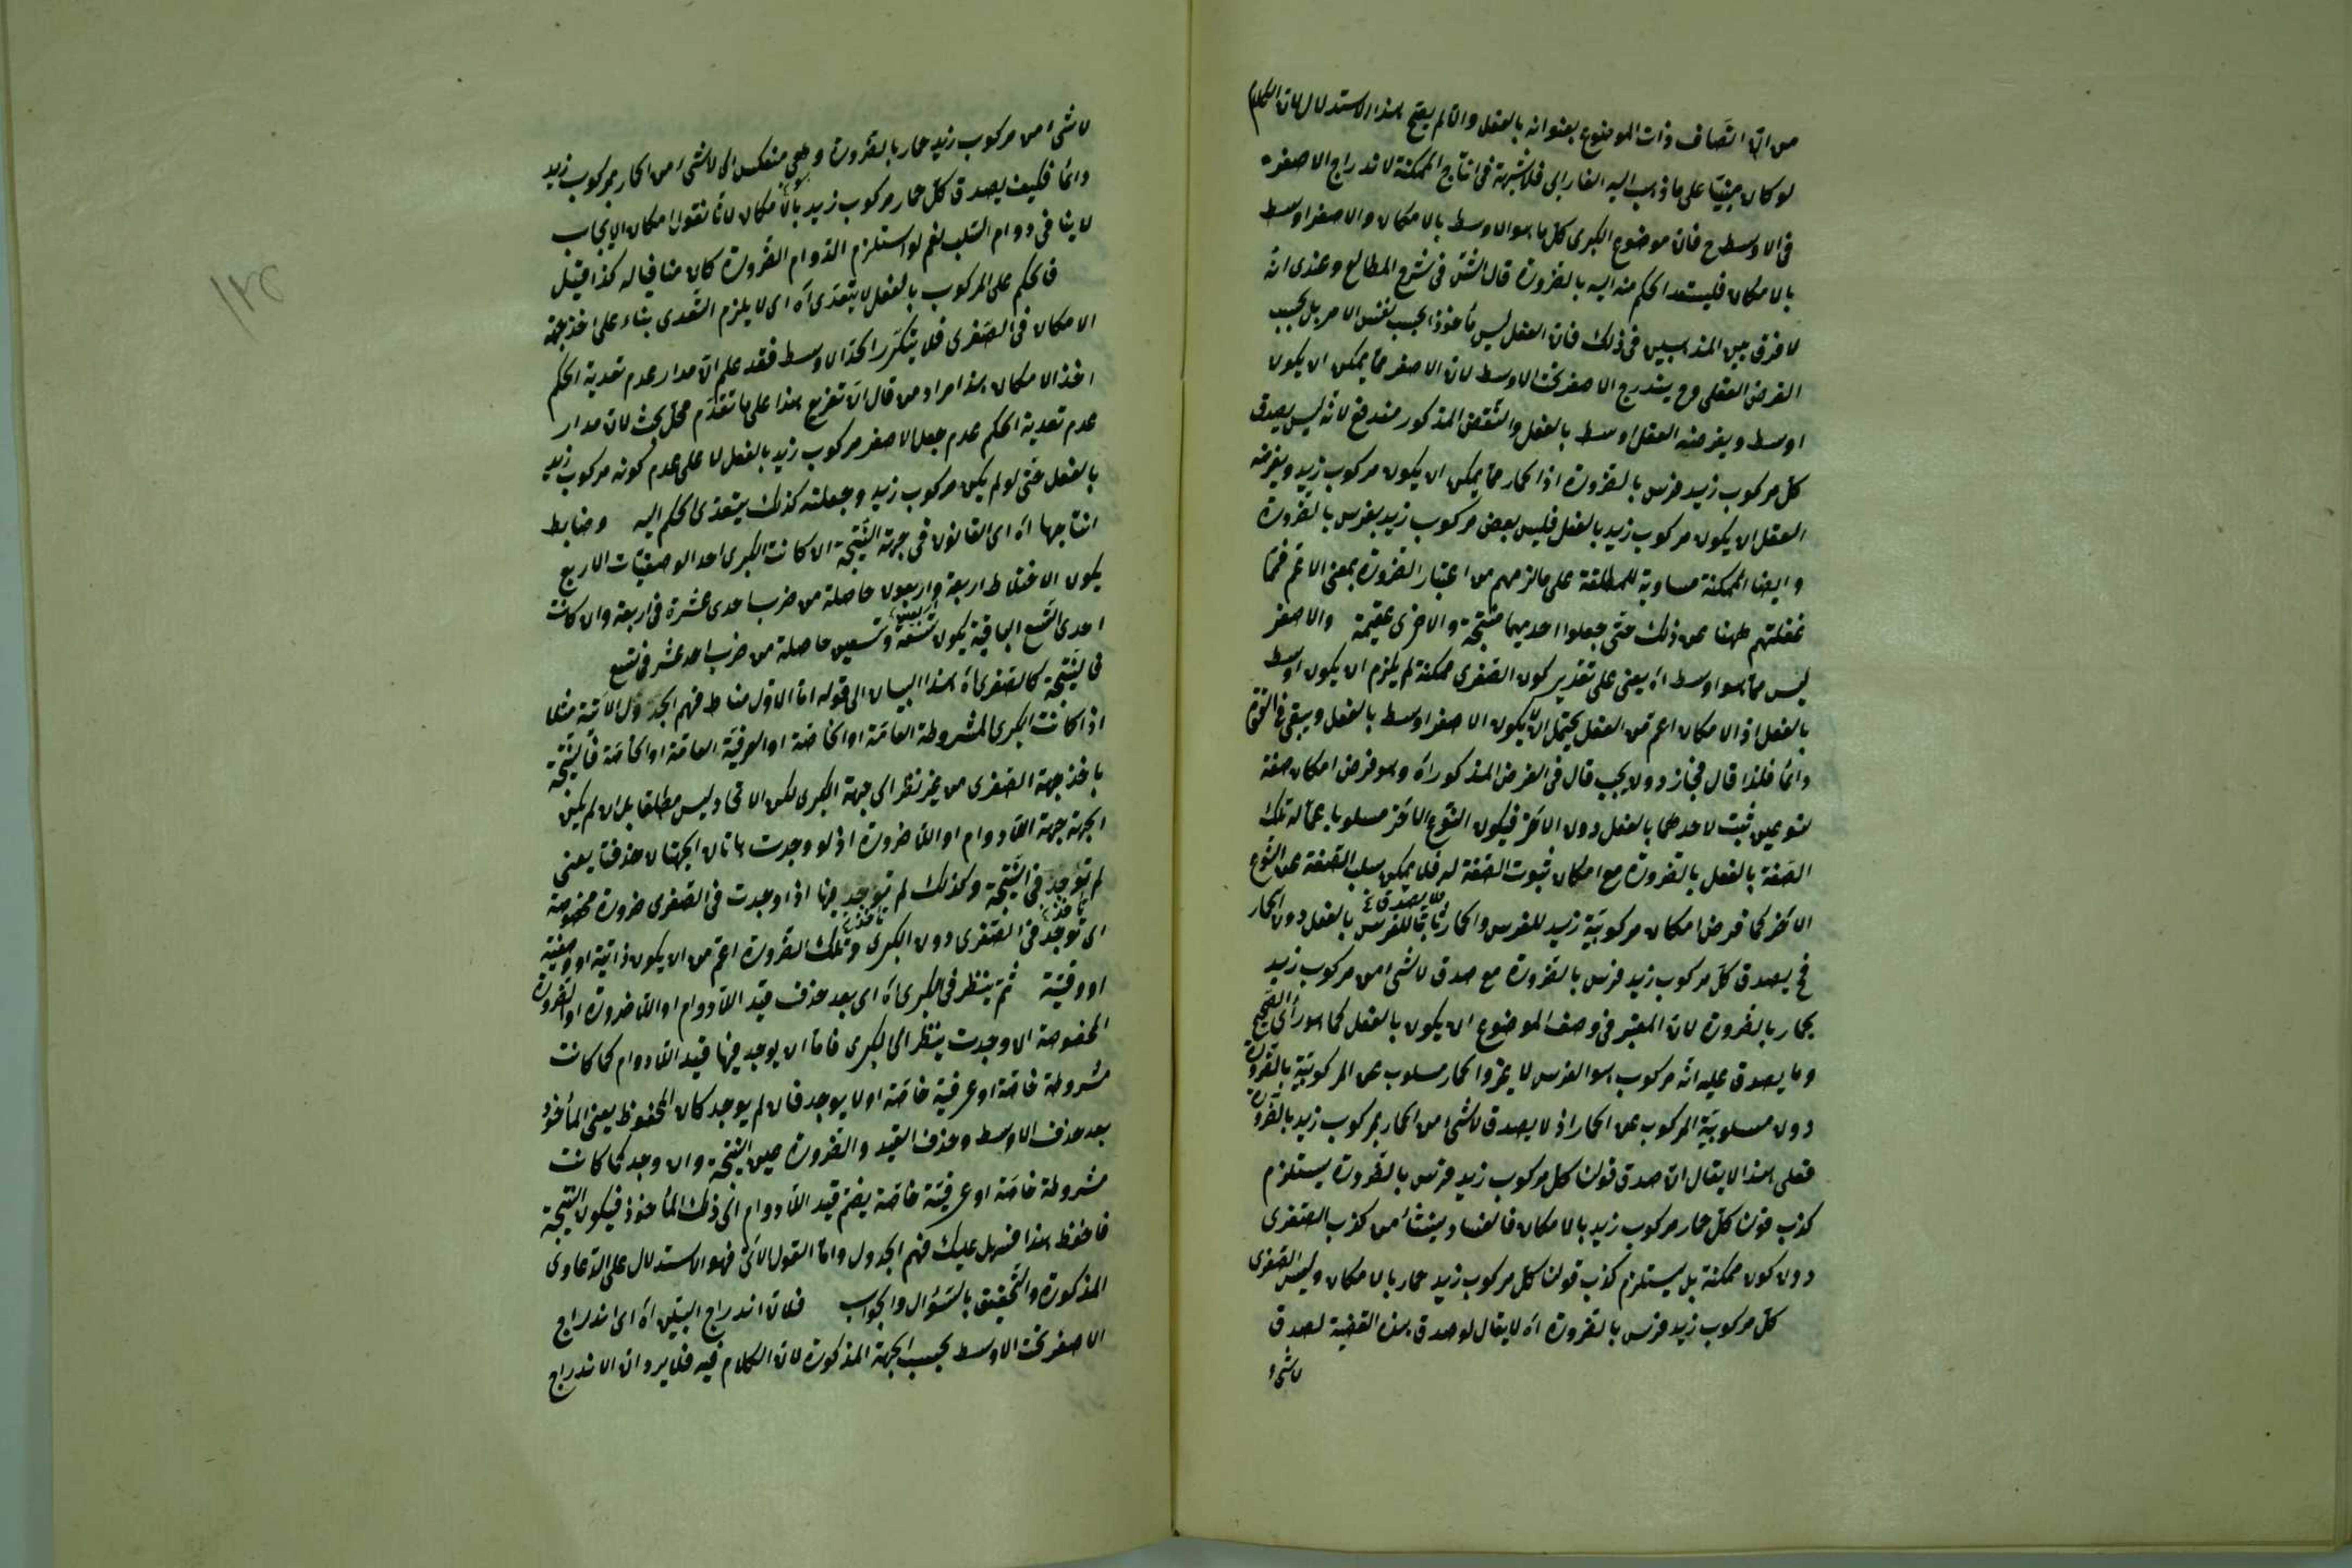 من ان اتصاف ذات الموضوع بعنوانه بالفعل والا لم يصح هذا الاستدلال لان الكلام
لو كان مبنيا على ما ذهب اليه الفارابى فلا شبهة فى انتاج الممكنة لاندراج الاصغر
فى الاوسط ح فان موضوع الكبرى كل ما هو الاوسط بالامكان والاصغر اوسط
بالامكان فليستعد الحكم منه اليه بالضرورة قال الش فى شرح المطالع وعندى انه
لا فرق بين المذهبين فى ذلك فان الفعل ليس مأخوذا بحسب نفس الامر بل بحسب
الفرض العقلى وح يندرج الاصغر تحت الاوسط لان الاصغر مما يمكن ان يكون
اوسط ويفرضه العقل اوسط بالفعل والنقض المذكور مندفع لانه ليس يصدق
كل مركوب زيد فرس بالضرورة اذا الحمار مما يمكن ان يكون مركوب زيد ويفرضه
العقل ان يكون مركوب زيد بالفعل فليس بعض مركوب زيد بفرس بالضرورة
وايضا الممكنة مساوية للمطلقة على ما لزمهم من اعتبار الضرورة بمعنى الاعم فما
غفلتهم ههنا عن ذلك حتى جعلوا احديهما منتجة والاخرى عقيمة والاصغر
ليس مما هو اوسط اه يعنى على تقدير كون الصغرى ممكنة لم يلزم ان يكون اوسط
بالفعل اذ الامكان اعم من الفعل يحتمل ان لا يكون الاصغر اوسط بالفعل ويبقى فى القوة
دائما فلذا قال فجاز دون يجب قال فى الفرض المذكور اه وهو فرض امكان صفة
لنوعين ثبت لاحدهما بالفعل دون الاخر فيكون النوع الاخر مسلوبا عما له تلك
الصفة بالفعل بالضرورة مع امكان ثبوت الصفة له فلا يمكن سلب الصفة عن النوع
الاخر كما فرض امكان مركوبية زيد للفرس والحمار ثابتا للفرس بالفعل دون الحمار
فح يصدق كل مركوب زيد فرس بالضرورة مع صدق لا شئ من مركوب زيد
بحمار بالضرورة لان المعتبر فى وصف الموضوع ان يكون بالفعل كما هو رأى الشيخ
وما يصدق عليه انه مركوب هو الفرس لا غير والحمار مسلوب عن المركوبية بالضرورة
دون مسلوبية المركوب عن الحمار اذ لا يصدق لا شئ من الحمار بمركوب زيد بالضرورة
فعلى هذا لا يقال ان صدق قولنا كل مركوب زيد فرس بالضرورة يستلزم
كذب قولنا كل حمار مركوب زيد بالامكان فالفساد ينشأ من كذب الصغرى
دون كون ممكنة بل يستلزم كذب قولنا كل مركوب زيد حمار بالامكان وليس الصغرى
كل مركوب زيد فرس بالضرورة اه لا يقال لو صدق هذه القضية لصدق
لا شئ
لا شئ من مركوب زيد حمار بالضرورة وهى منعكس الى لا شئ من الحمار بمركوب زيد
دائما فكيف يصدق كل حمار مركوب زيد بالامكان لانا نقول امكان الايجاب
لا ينافى دوام السلب نعم لو استلزم الدوام الضرورة كان منافيا له كذا قيل
فالحكم على المركوب بالفعل لا يتعدى اه اى لا يلزم التعدى بناء على اخذ جهة
الامكان فى الصغرى فلا يتكرر الحد الاوسط فقد علم ان مدار عدم تعدية الحكم
اخذ الامكان هذا مراد من قال ان تفريع هذا على ما تقدم محل بحث لان مدار
عدم تعدية الحكم عدم جعل الاصغر مركوب زيد بالفعل لا على عدم كونه مركوب زيد
بالفعل حتى لو لم يكن مركوب زيد وجعلته كذلك يتعدى الحكم اليه وضابط
انتاجها اه اى القانون فى جهة النتيجة ان كانت الكبرى احد الوصفيات الاربع
يكون الاختلاط اربعة واربعون حاصلة من ضرب احدى عشرة فى اربعة وان كانت
احدى التسع الباقية يكون تسعة وتسعين حاصلة من ضرب احد عشر فى تسع
فالنتيجة كالصغرى اه هذا البيان الى قوله اما الاول مناط فهم الجدول الاتية مثلا
اذا كانت الكبرى المشروطة العامة او الخاصة او العرفية العامة او الخاصة فالنتيجة
باخذ جهة الصغرى من غير نظر الى جهة الكبرى لكن الاتحاد ليس مطلقا بل ان لم يكن
الجهة جهة اللادوام او اللاضرورة اذ لو وجدت هاتان الجهتان حذفنا يعنى
لم توجد فى النتيجة وكذلك لم توجد فيها اذا وجدت فى الصغرى ضرورة مخصوصة
اى توجد فى الصغرى دون الكبرى وتلك الضرورة اعم من ان يكون ذاتية او وصفية
او وقتية ثم ينظر فى الكبرى اه اى بعد حذف قيد اللادوام او اللاضرورة او الضرورة
المخصوصة ان وجدت ينظر الى الكبرى فاما ان يوجد فيها قيد اللادوام كما كانت
مشروطة خاصة او عرفية خاصة او لا يوجد فان لم يوجد كان المحفوظ يعنى المأخوذ
بعد حذف الاوسط وحذف القيد والضرورة عين النتيجة وان وجد كما كانت
مشروطة خاصة او عرفية خاصة يضم قيد اللادوام الى ذلك المأخوذ فيكون النتيجة
فاحفظ هذا فسهل عليك فهم الجدول واما القول الاتى فهو الاستدلال على الدعاوى
المذكورة والتحقيق بالسؤال والجواب فلان اندراج البين اه اى اندراج
الاصغر تحت الاوسط بحسب الجهة المذكورة لان الكلام فيه فلا يرد ان الاندراج